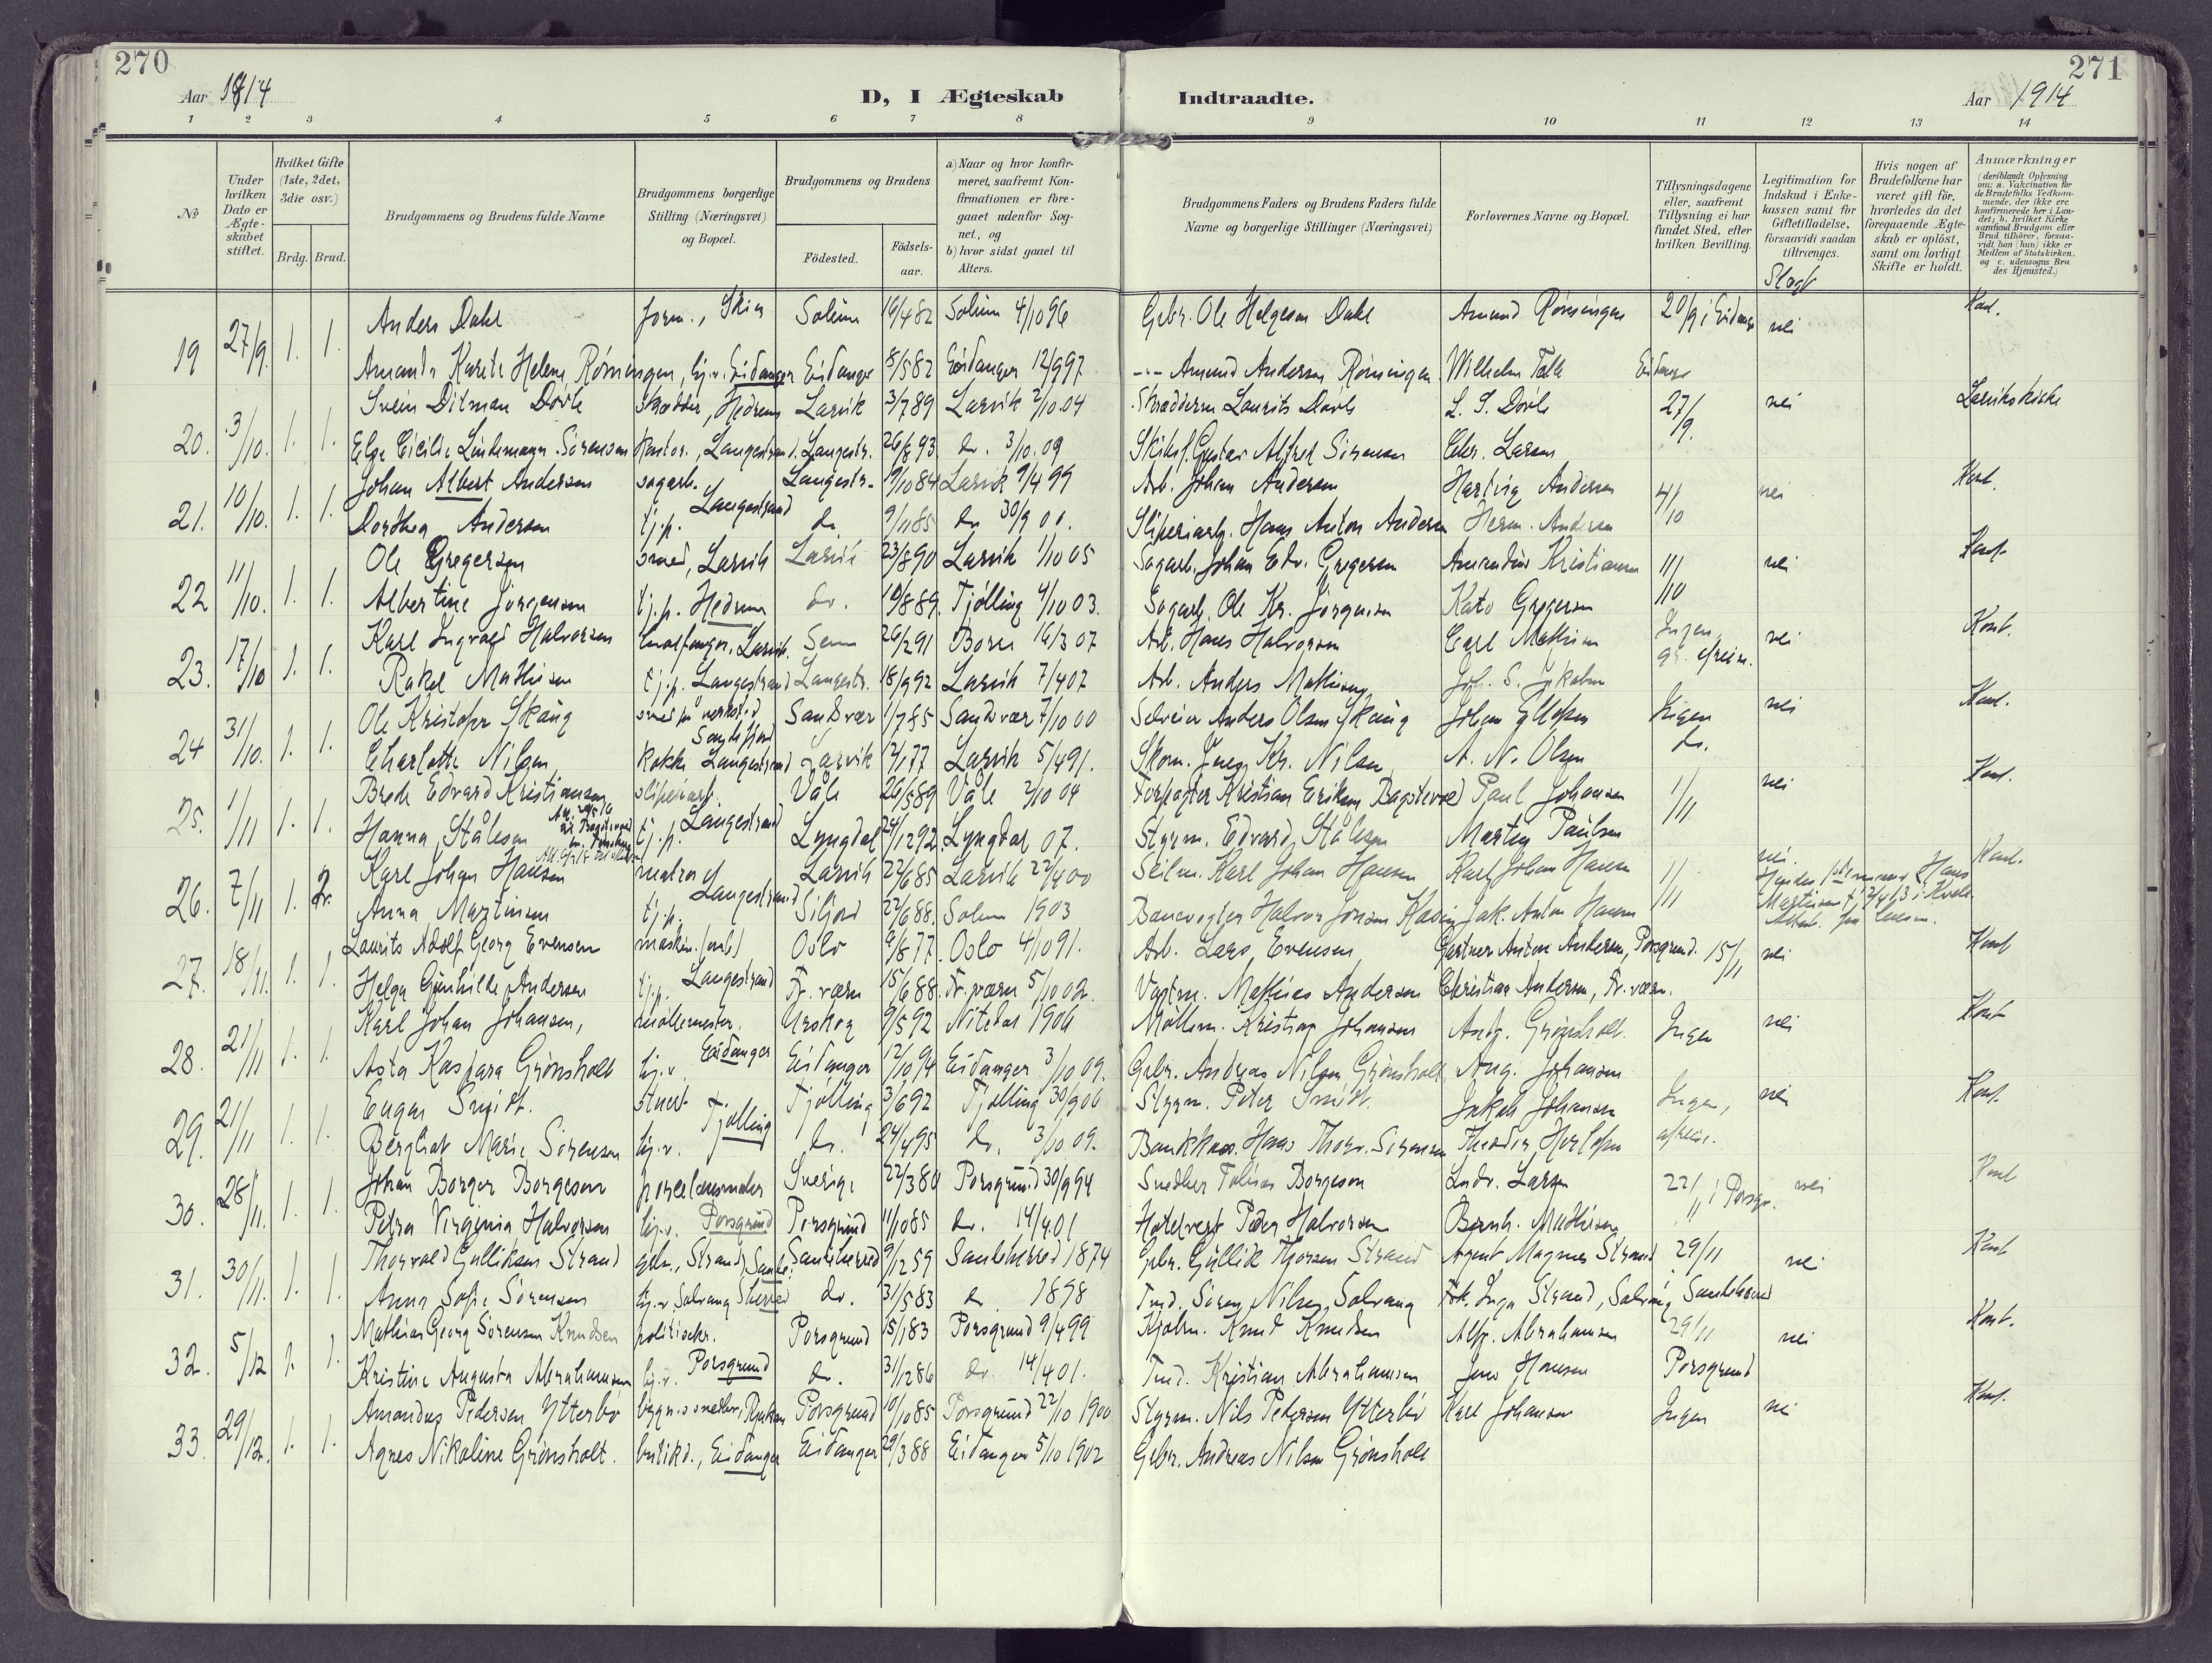 270
271
Aar 1914
D, I Ægteskab
Indtraadte.
Aar 1914
1 2 3 4 5 6 7 8 9 10 11 12 13 14
№
Under hvilken Dato er Ægte-skabet stiftet.
Hvilket Gifte (1ste, 2det, 3die osv.)
Brdg. Brud.
Brudgommens og Brudens fulde Navne
Brudgommens borgerlige Stilling (Næringsvei) og Bopæl.
Brudgommens og Brudens
Födested.
Födsels-aar.
a) Naar og hvor konfir-meret, saafremt Kon-firmationen er fore-gaaet udenfor Sog-net, og
b) hvor sidst gaaet til Alters.
Brudgommens Faders og Brudens Faders fulde Navne og borgerlige Stillinger (Næringsvei)
Forlovernes Navne og Bopæl.
Tillysningsdagene eller, saafremt Tillysning ei har fundet Sted, efter hvilken Bevilling.
Legitimation for Indskud i Enke-kassen samt for Giftetilladelse, forsaavidt saadan tiltrænges.
Hvis nogen af Brudefolkene har været gift för, hvorledes da det foregaaende Ægte-skab er oplöst, samt om lovligt Skifte er holdt.
Anmærkninger (deriblandt Oplysning om: a. Vakcination for de Brudefolks Vedkom-mende, der ikke ere konfirmerede her i Lan-det; b. hvilket Kirke samfund Brudgom eller Brud tilhörer, forsaa-vidt han (hun) ikke er Medlem af Statskirken, og c. udensogns Bru des Hjemsted.)
Slægt
19 27/9. 1. 1. Anders Dahl form., Skien Solum 16/4 82 Solum 4/10 96 Gbr. Ole Helgesen Dahl Amund Rønningen 20/9 i Eidanger nei Kont.
Amanda Karete Helene Rønningen, hj.v. Eidanger Eidanger 8/5 82 Eidanger 12/9 97 -"- Amund Andersen Rønningen Wilhelm Falk
20. 3/10. 1. 1. Svein Ditman Døvle skrædder, Hedrum Larvik 3/7 89 Larvik 2/10 04 Skrædderm. Laurits Døvle L. S. Døvle 27/9. nei Larviks kirke
Else Cicilie Lindemann Sørensen kontor., Langestrand. Langestr. 26/8 93 do. 3/10 09 Skibsf. Gustav Alfred Sørensen Chr. Larsen
21. 10/10. 1. 1. Johan Albert Andersen sagarb. Langestrand Langestr. 9/10 84 Larvik 9/4 99 Arb. Johan Andersen Hartvig Andersen 4/10 nei Kont.
Dorthea Andersen tj.p. do 9/11 85 do 30/9 00. Sliperiarb. Hans Anton Andersen Herm. Andersen
22 11/10. 1. 1. Ole Gregersen smed, Larvik Larvik 23/8 90 Larvik 1/10 05 Sagarb. Johan Edv. Gregersen Amandus Kristiansen 11/10 nei Kont.
Albertine Jørgensen tj.p. Hedrum do. 19/8 89. Tjølling 4/10 03. Sagarb. Ole Kr. Jørgensen Kato Gregersen
23. 17/10 1. 1. Karl Ingvald Halvorsen hvalfanger, Larvik. Sem 26/2 91 Borre 16/3 07 Arb. Hans Halvorsen Carl Mathisen Ingen nei Kont.
Rakel Mathisen tj.p. Langestrand Langestr. 18/9 92 Larvik 7/4 07 Arb. Anders Mathisen Joh. S. Jakobsen
24 31/10. 1. 1. Ole Kristofer Skaug smed Sandefjord Sandsvær 1/7 85 Sandsvær 7/10 00 Selveier Anders Olsen Skaug Johan Ellefsen Ingen nei Kont.
Charlotte Nilsen Kokke Langestrand Larvik Larvik 5/4 91. Skom. Kr. Nilsen A. N. Olsen do.
25. 1/11 1. 1. Brede Edvard Kristiansen sliperiarb. Langestrand Våle 26/5 89 Våle 2/10 04 Forpagter Kristian Eriksen Paul Johansen 1/11 nei Kont.
Hanna Ståleson tj.p. Lyngdal 24/12 92. Lyngdal 07. Styrm. Edvard Ståleson Martin Paulsen
26. 7/11 1. 2. Karl Johan Hansen matros Langestrand Larvik 22/6 85 Larvik 22/4 00 Seilm. Karl Johan Hansen Karl Johan Hansen 1/11 nei. Kont.
Anna Martinsen tj.p. Siljord 22/6 88. Solum 1903 Banevogter Halvor Jonsen Jak. Anton Hansen
27. 18/11. 1. 1. Laurits Adolf Georg Evensen maskin. Langestrand Oslo 9/8 77. Oslo 4/10 91. Arb. Lars Evensen Gartner Anton Andersen, Porsgrund. 15/11 nei Kont
Helga Gunhilde Andersen tj.p. Fr. værn 15/6 88. Fr. værn 5/10 02. Vagtm. Mathias Andersen Christian Andersen, Fr. værn.
28. 21/11 1. 1. Karl Johan Johansen, møllemester. Eidanger Urskog 9/5 92 Nitedal 1906 Møllem. Kristian Johansen Andr. Grønsholt. Ingen nei Kont
Asta Kaspara Grønsholt hj.v. Eidanger 12/10 94 Eidanger 3/10 09. Gbr. Andreas Nilsen Grønsholt Aug. Johansen
29. 21/11 1. 1. Smidt. stuert Tjølling Tjølling 3/6 92 Tjølling 30/9 06 Styrm. Peter Smidt. Jakob Johansen Ingen, nei Kont.
Bergliot Marie Sørensen hj.v. do. 24/4 95 do. 3/10 09. Bankkas. Hans Thorv. Sørensen
30. 28/11. 1. 1. Johan Borger Borgeson porcelænsmaler Sverige 22/3 80 Porsgrund 30/9 94 Snedker Tobias Borgeson Ludv. Larsen 22/11 i Porsgr. nei Kont
Petra Virginia Halvorsen hj.v. Porsgrund Porsgrund 11/10 85 do. 14/4 01 Hotelvert Peder Halvorsen Bernh. Mathisen
31. 30/11. 1. 1. Thorvald Gulliksen Strand gbr., Strand, Sandeherred Sandeherred 9/12 59 Sandeherred 1874 Gbr. Gullik Thorsen Strand Agent Magnus Strand 29/11 nei Kont
Anna Sofie Sørensen hj.v. Solvang do. 31/5 83 do 1898 Tmd. Søren Nilsen Solvang Frk. Inga Strand, Solvang i Sandeherred
32. 5/12 1. 1. Mathias Georg Sørensen Knudsen politibetj. Porsgrund Porsgrund 15/1 83 Porsgrund 9/4 99 Knud Knudsen Alfr. Abrahamsen 29/11 nei Kont.
Kristine Augusta Abrahamsen hj.v. do. 31/12 86 do. 14/4 01. Tmd. Kristian Abrahamsen Jens Hansen Porsgrund
33. 29/12. 1. 1. Amandus Pedersen Ytterbø bygn.snedker, Rjukan Porsgrund 10/10 85 Porsgrund 22/10 1900 Styrm. Nils Pedersen Ytterbø Karl Johansen Ingen nei Kont.
Agnes Nikoline Grønsholt. butikd., Eidanger Eidanger 29/3 88 Eidanger 5/10 1902 Gbr. Andreas Nilsen Grønsholt